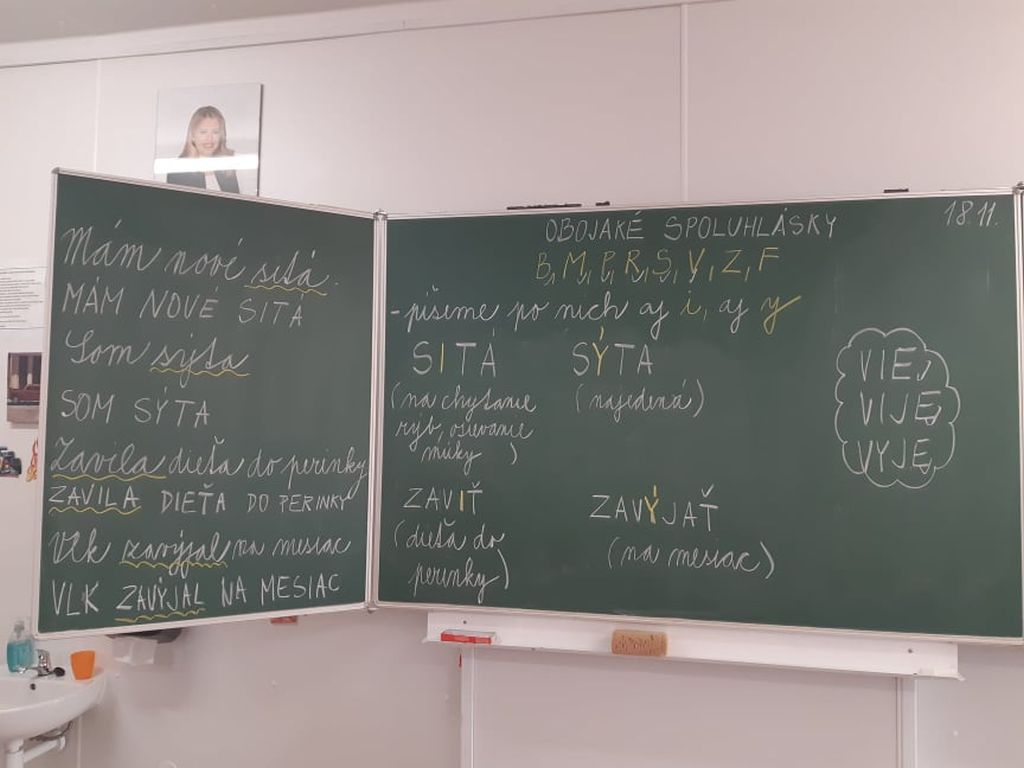 Mám nové sitá.
MÁM NOVÉ SITÁ
Som sýta
SOM SÝTA
Zavila dieťa do perinky
ZAVILA DIEŤA DO PERINKY
Vlk zavýjal na mesiac
VLK ZAVÝJAL NA MESIAC
18.11.
OBOJAKÉ SPOLUHLÁSKY
B, M, P, R, S, V, Z, F
- píšeme po nich aj i, aj y
SITÁ SÝTA
(na chytanie (najedená)
rýb, osievanie
múky )
ZAVIŤ ZAVÝJAŤ
(dieťa do (na mesiac)
perinky)
VIE,
VIJE,
VYJE,